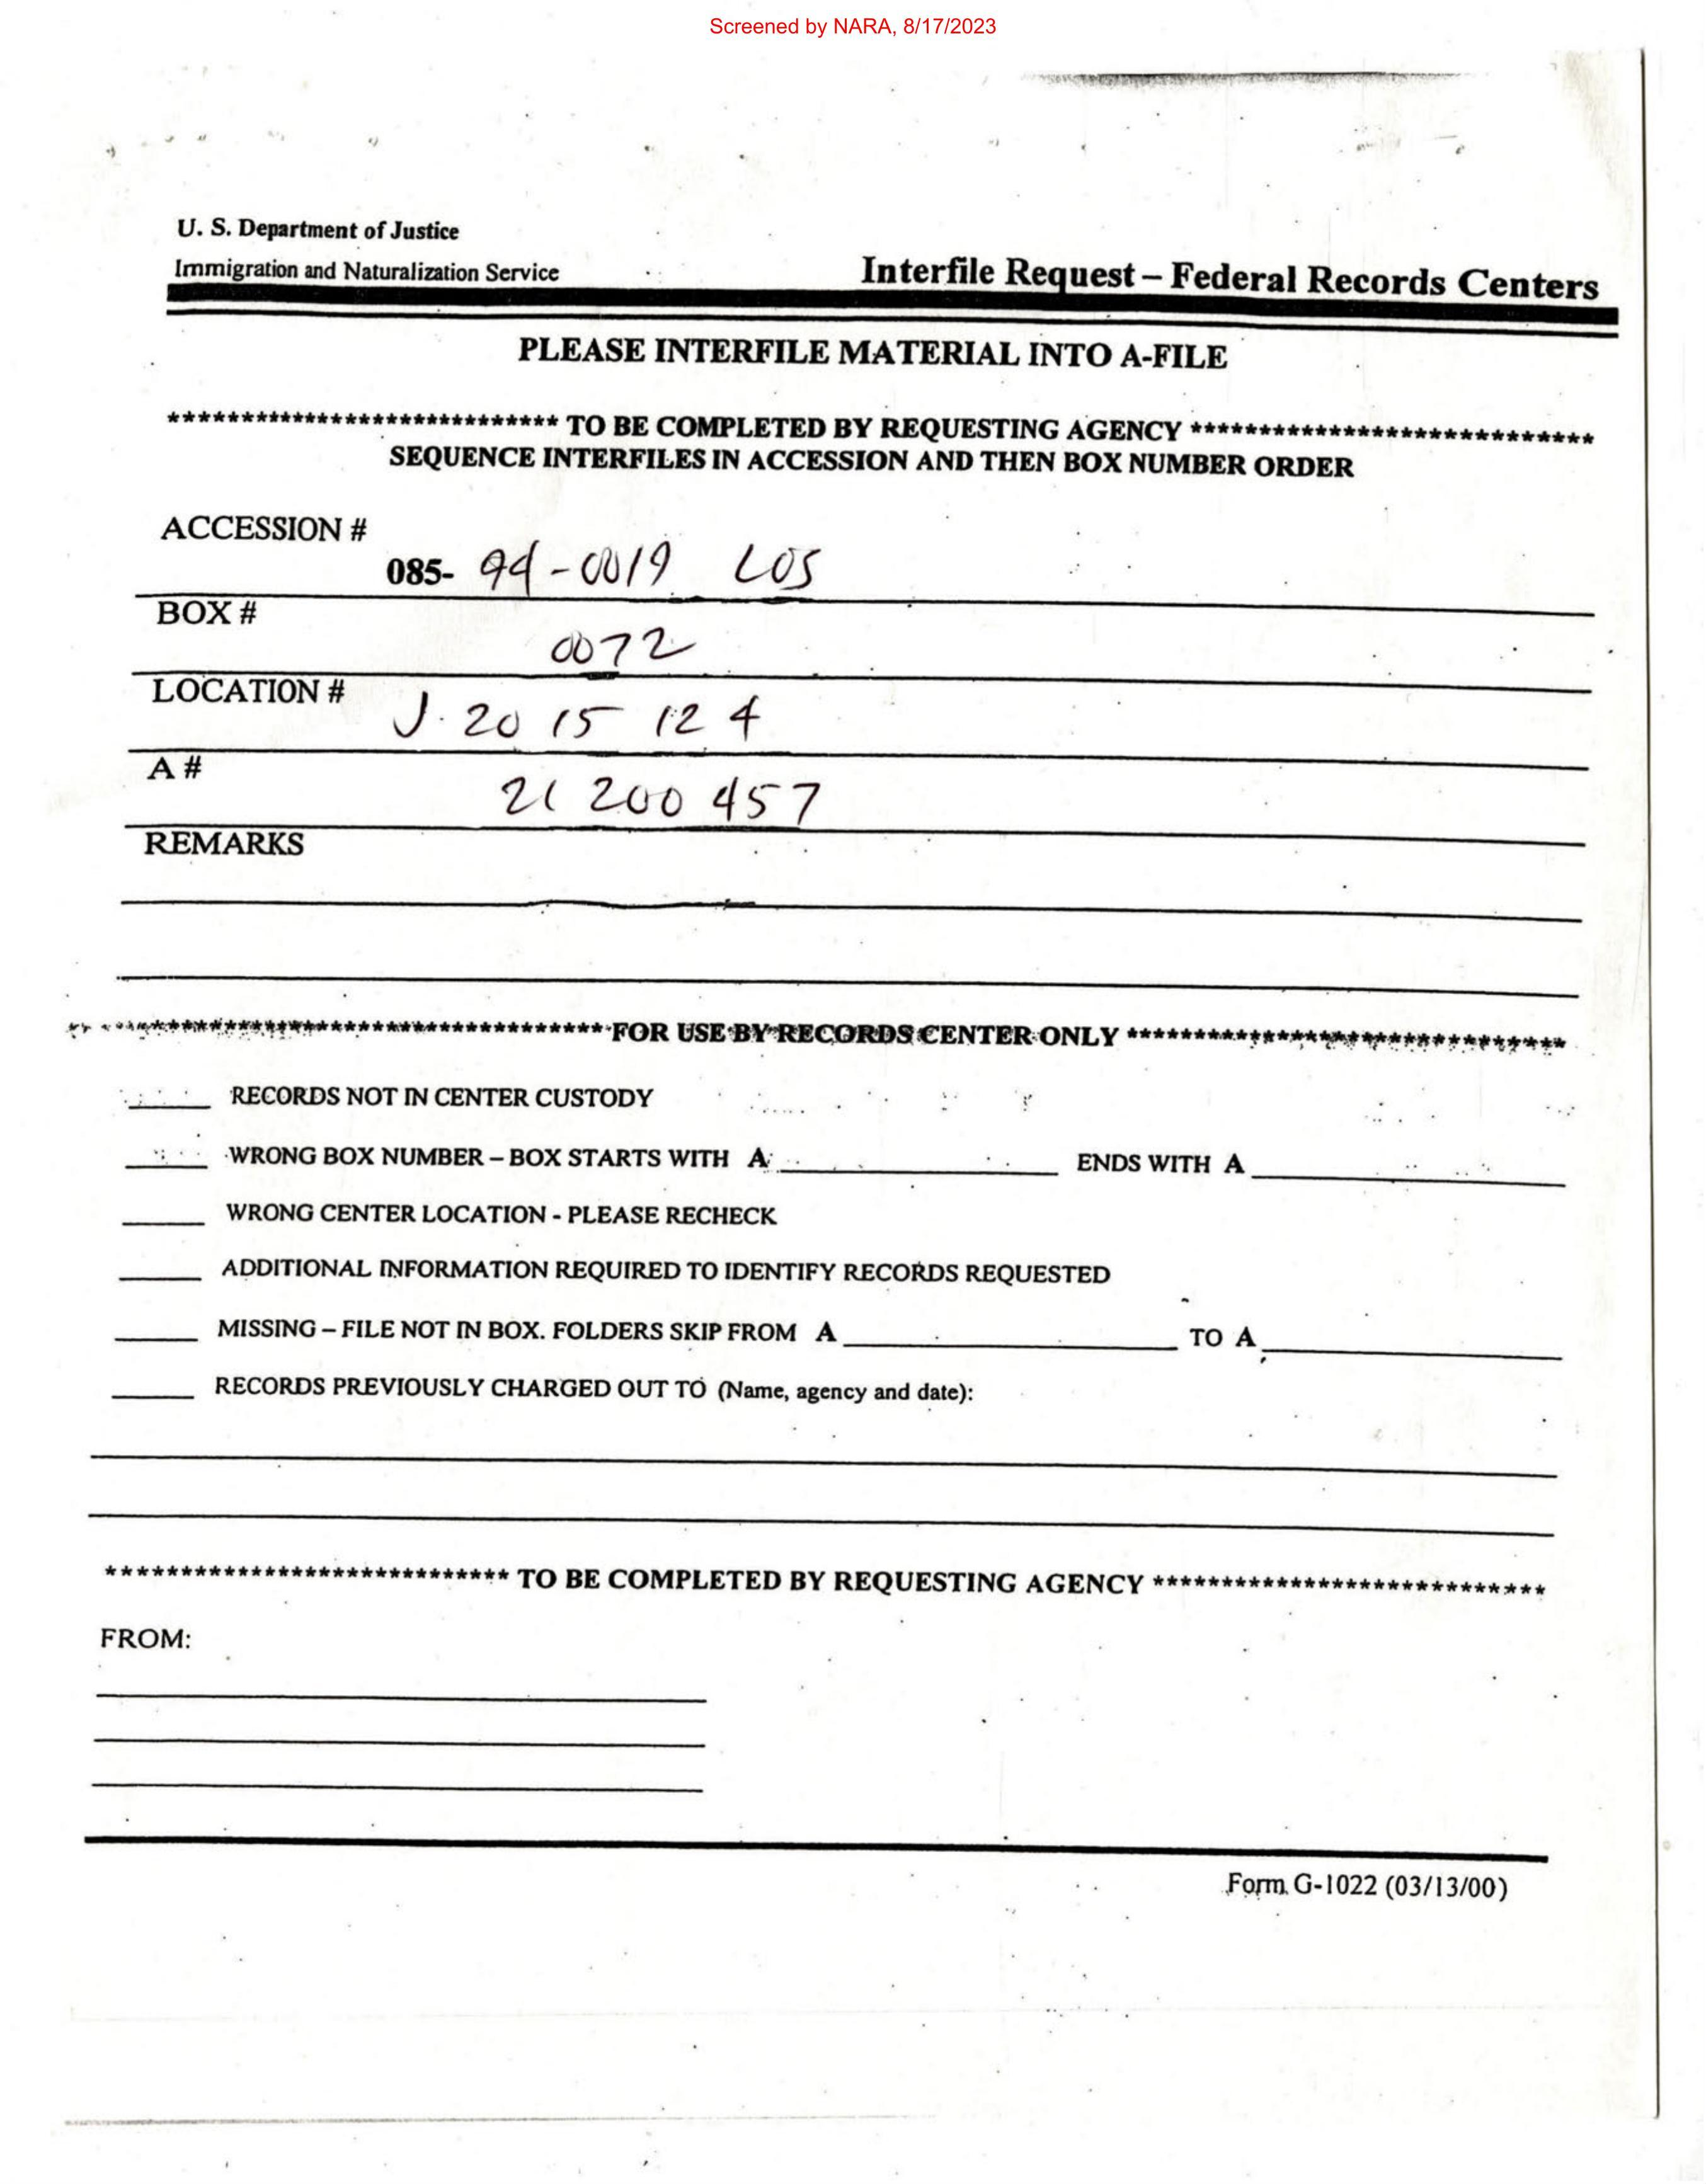 Screened by NARA, 8/17/2023
U. S. Department of Justice
Immigration and Naturalization Service
Interfile Request – Federal Records Centers
PLEASE INTERFILE MATERIAL INTO A-FILE
**************************** TO BE COMPLETED BY REQUESTING AGENCY ****************************
SEQUENCE INTERFILES IN ACCESSION AND THEN BOX NUMBER ORDER
ACCESSION #
085- 94-0019 LOS
BOX #
0072
LOCATION #
J 20 15 12 4
A #
21 200 457
REMARKS
******************************** FOR USE BY RECORDS CENTER ONLY ********************************
RECORDS NOT IN CENTER CUSTODY
WRONG BOX NUMBER – BOX STARTS WITH A ENDS WITH A
WRONG CENTER LOCATION - PLEASE RECHECK
ADDITIONAL INFORMATION REQUIRED TO IDENTIFY RECORDS REQUESTED
MISSING – FILE NOT IN BOX. FOLDERS SKIP FROM A TO A
RECORDS PREVIOUSLY CHARGED OUT TO (Name, agency and date):
**************************** TO BE COMPLETED BY REQUESTING AGENCY ****************************
FROM:
Form G-1022 (03/13/00)